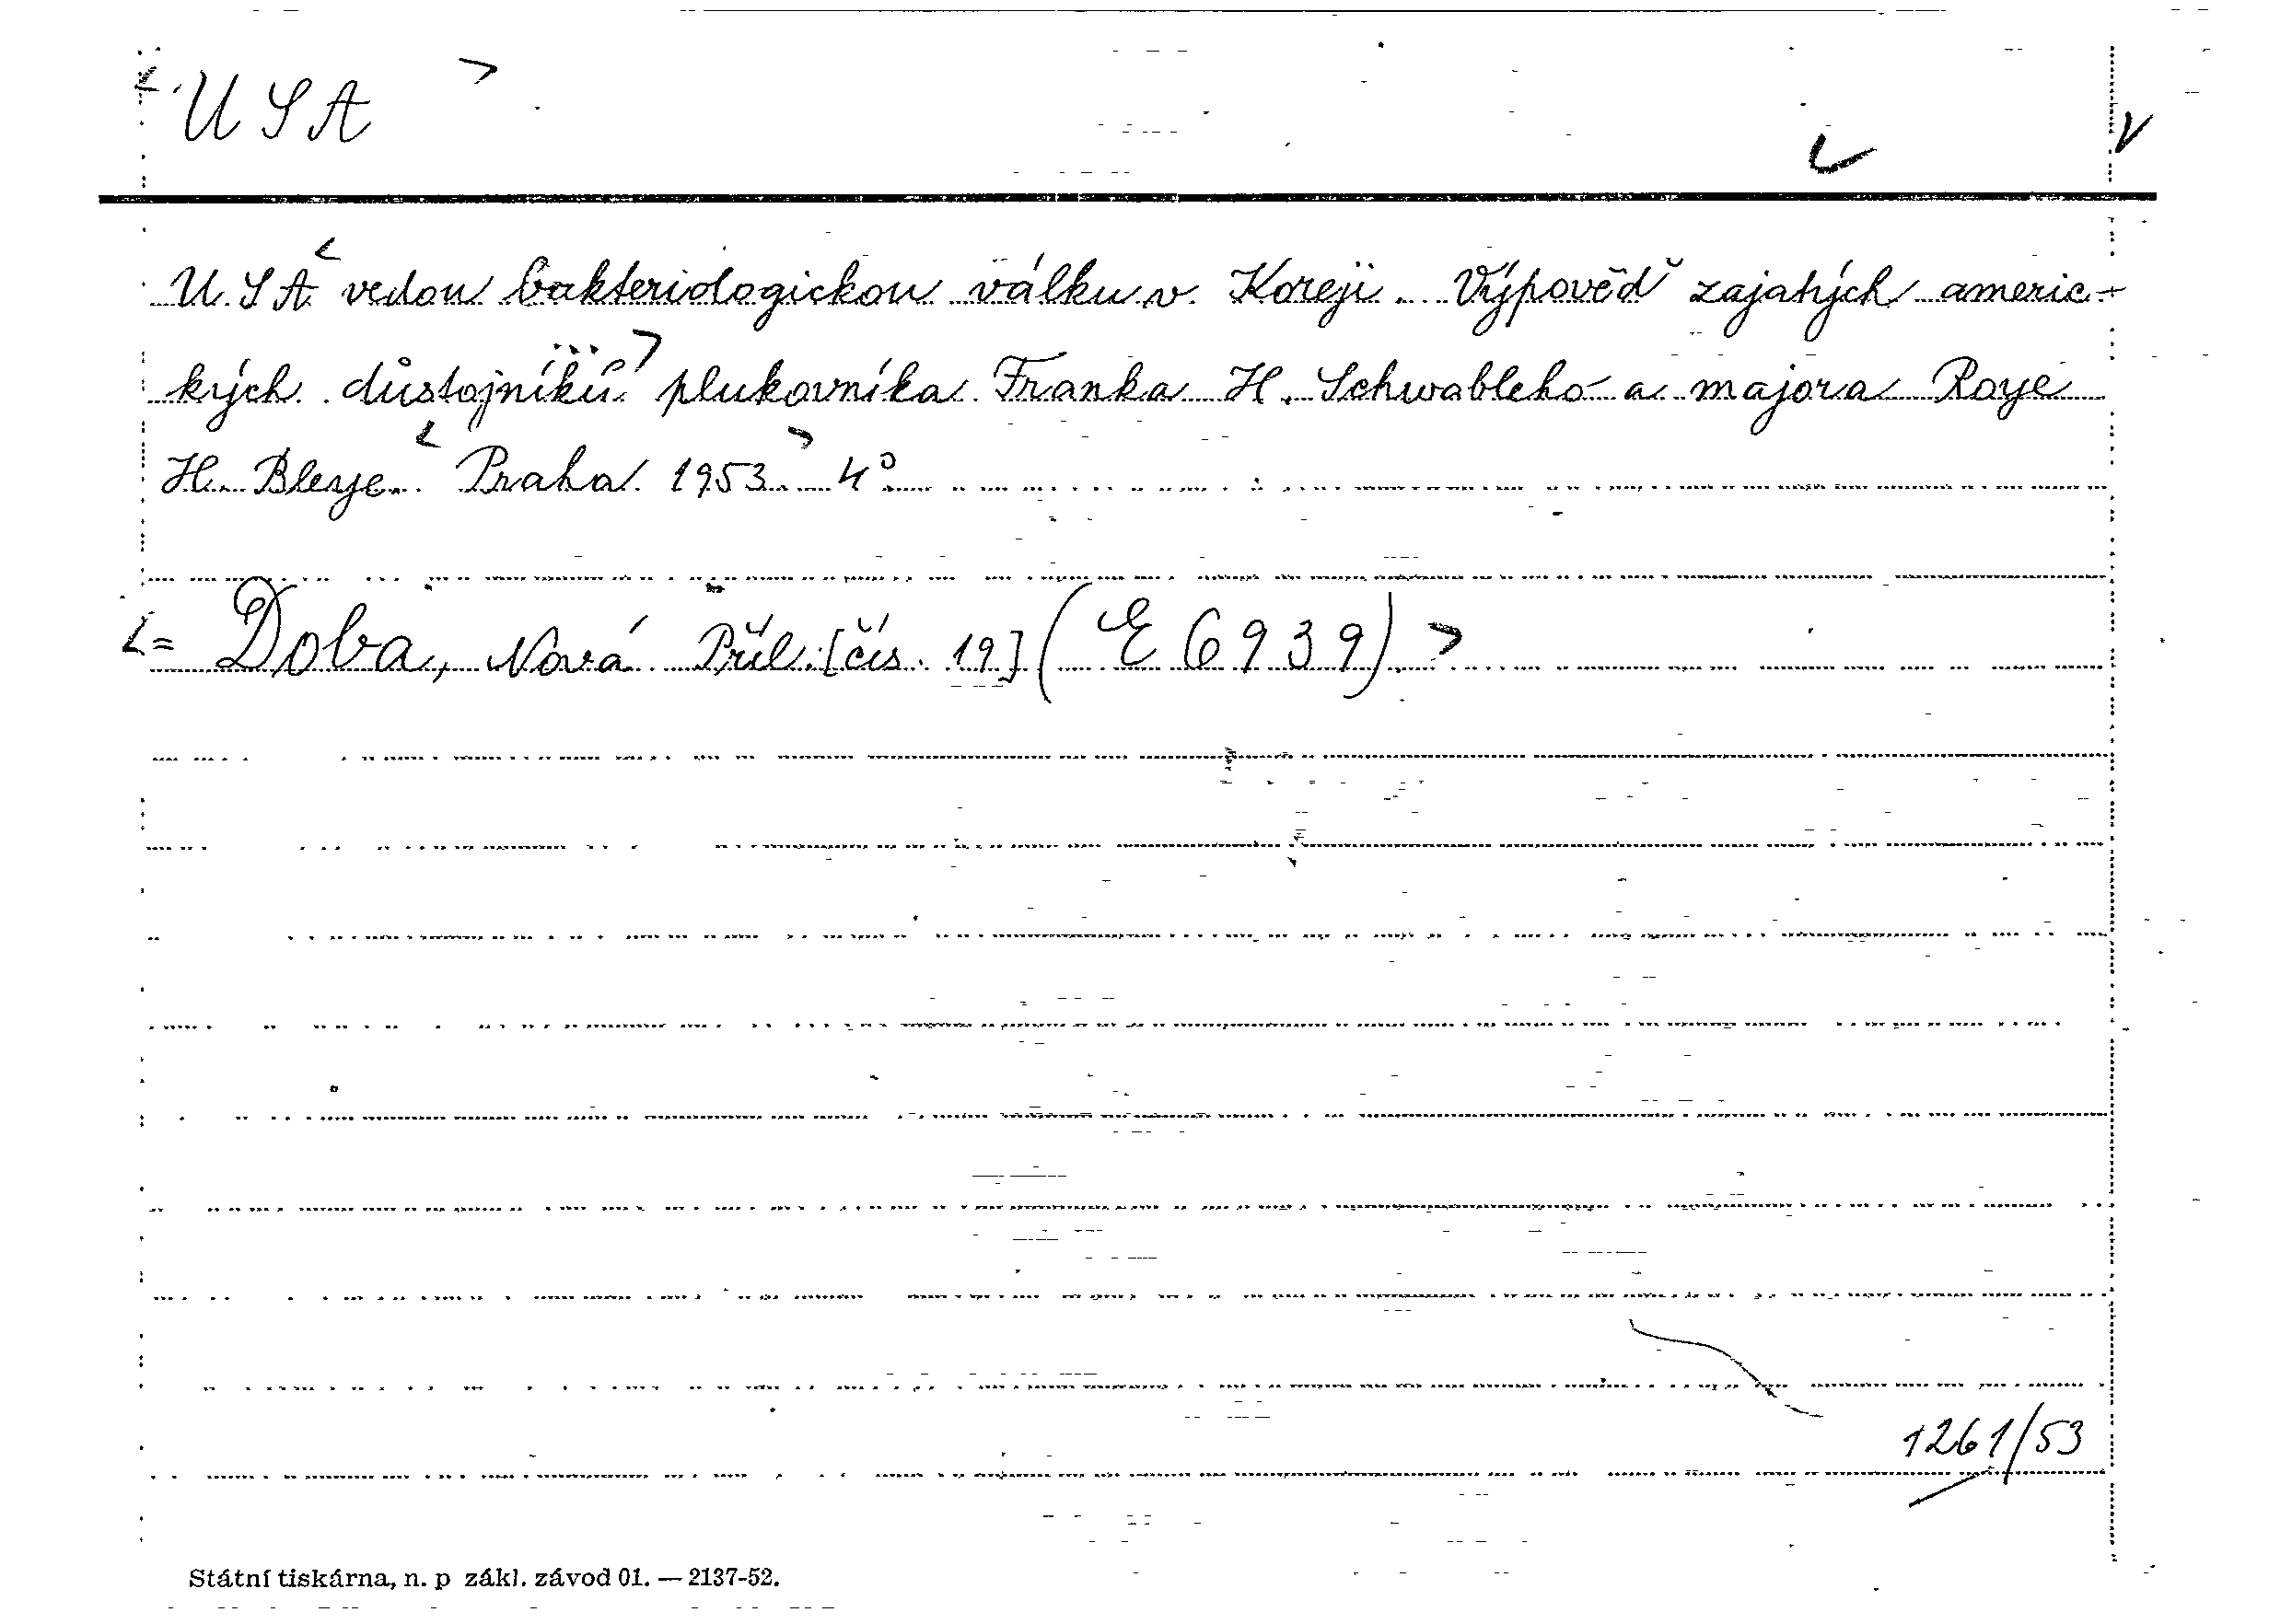 USA
USA vedou bakteriologickou válku v Koreji. Výpověď zajatých americ-
kých důstojníků plukovníka Franka H. Schwableho a majora Roye
H. Bleye. Praha 1953. 4°
= Doba, Nová Příl. [čís. 19] (E 6939)
1261/53
Státní tiskárna, n. p zákl. závod 01. — 2137-52.